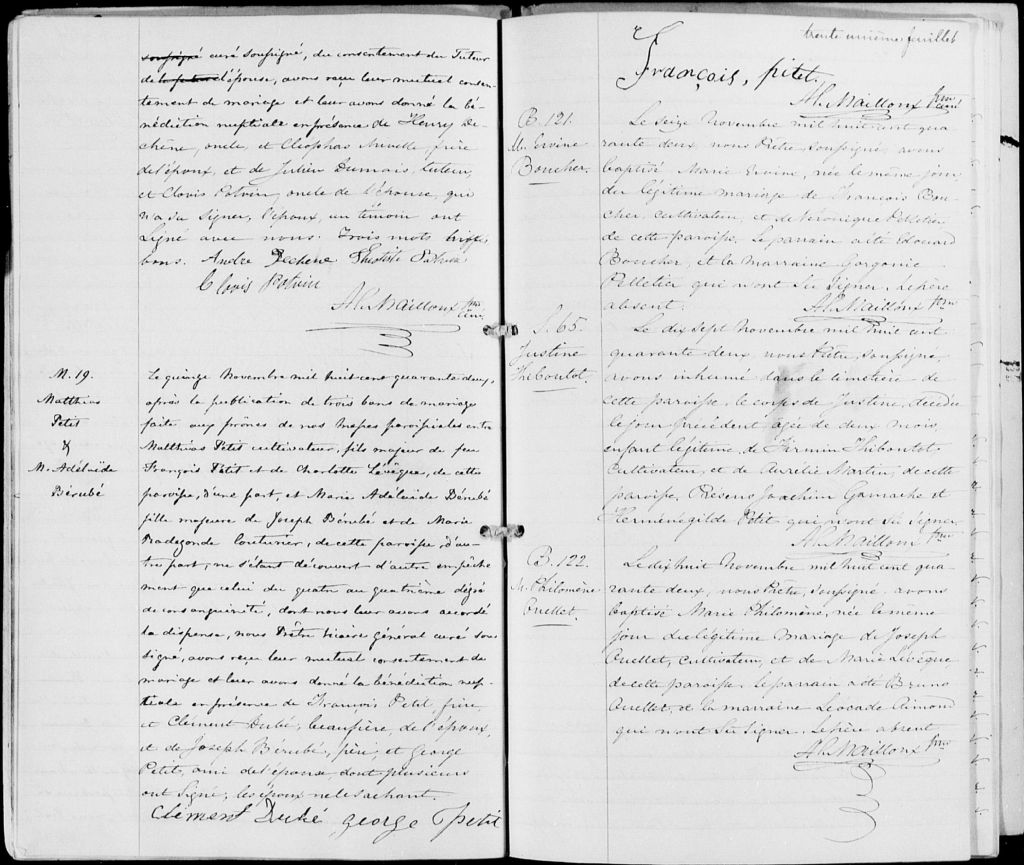 soussigné curé soussigné, du consentement du Tuteur
de la future l'épouse, avons reçu leur mutuel consen-
tement de mariage et leur avons donné la bé-
nédiction nuptiale en présence de Henry De-
chêne, oncle, et Cléophas frère
de l'époux, et de Julien Dumais, tuteur,
et Clovis Potvin, oncle de l'épouse, qui
n'a su signer, l'époux, un témoin ont
signé avec nous. Trois mots biffés
bons. André Dechene
Clovis Potvin
Al. Mailloux Ptre
Curé.
M. 19.
Matthias
Petit
&
M. Adélaïde
Bérubé
Le quinze Novembre mil huit cent quarante deux,
après la publication de trois bans de mariage
faite aux prônes de nos messes paroissiales entre
Matthias Petit cultivateur, fils majeur de feu
François Petit et de Charlotte Lévêque, de cette
paroisse, d'une part, et Marie Adélaïde Bérubé
fille majeure de Joseph Bérubé et de Marie
Radegonde Couturier, de cette paroisse, d'au-
tre part, ne s'étant découvert d'autre empêche
ment que celui du quatre au quatrième dégré
de consanguinité, dont nous leur avons accordé
la dispense, nous Prêtre vicaire général curé sous
signé, avons reçu leur mutuel consentement de
mariage et leur avons donné la bénédiction nup-
tiale en présence de François Petit, frère,
et Clément Dubé, beaufrère, de l'époux,
et de Joseph Bérubé, père, et George
Petit, ami de l'épouse, dont plusieurs
ont signé; les époux ne le sachant.
Clément Dubé george petit
trente unième feuillet
François, pitet,
Al. Mailloux Ptre
curé
B. 121.
M. Ervine
Boucher.
Le seize Novembre mil huit cent qua-
rante deux, nous Prêtre, soussigné, avons
baptisé Marie Ervine, née le même jour
du légitime mariage de François Bou-
cher, cultivateur, et de Véronique Pelletier
de cette paroisse. Le parrain a été Edouard
Boucher, et la marraine Gorgonie
Pelletier qui n'ont su signer. Le père
absent. Al. Mailloux Ptre
S. 65.
Justine
Thiboutot.
Le dix sept Novembre mil huit cent
quarante deux, nous Prêtre, soussigné,
avons inhumé dans le cimetière de
cette paroisse, le corps de Justine, décédée
le jour précédent agée de deux mois,
enfant légitime de Firmin Thiboutot
Cultivateur, et de Aurélie Martin, de cette
paroisse. Présens Joachim Gamache et
Herménégilde Petit qui n'ont su signer.
Al. Mailloux Ptre
B. 122.
M. Philomène
Ouellet.
Le dix huit Novembre mil huit cent qua-
rante deux, nous Prêtre, soussigné, avons
baptisé Marie Philomène, née le même
jour du légitime mariage de Joseph
Ouellet, cultivateur, et de Marie Lévêque
de cette paroisse. le parrain a été Bruno
Ouellet, et la marraine Léocade Cimond
qui n'ont su signer. Le père absent
Al. Mailloux Ptre